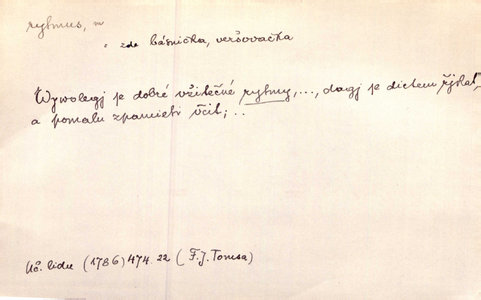 rytmus, m
zde básnička, veršovačka
Wywolegj se dobré vžitečné rytmy,..., dagj se djetem řjkat,
a pomalu zpaměti včit; ..
Uč. lidu (1786) 474.22 (F.J. Tomsa)